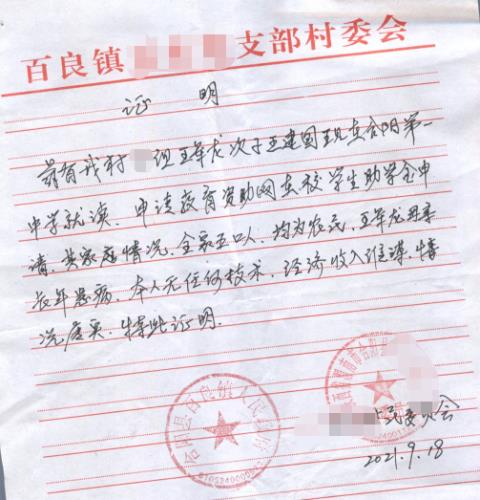 百良镇 支部村委会
证 明
兹有我村 组王军龙次子王建国现在合阳第一
中学就读、申请教育资助网在校学生助学金申
请、其家庭情况、全家五口人、均为农民、王军龙母亲
长年患病、本人无任何技术、经济收入维艰、情
况属实、特此证明.
合阳县百良镇人民政府
民委员会
2021.9.18